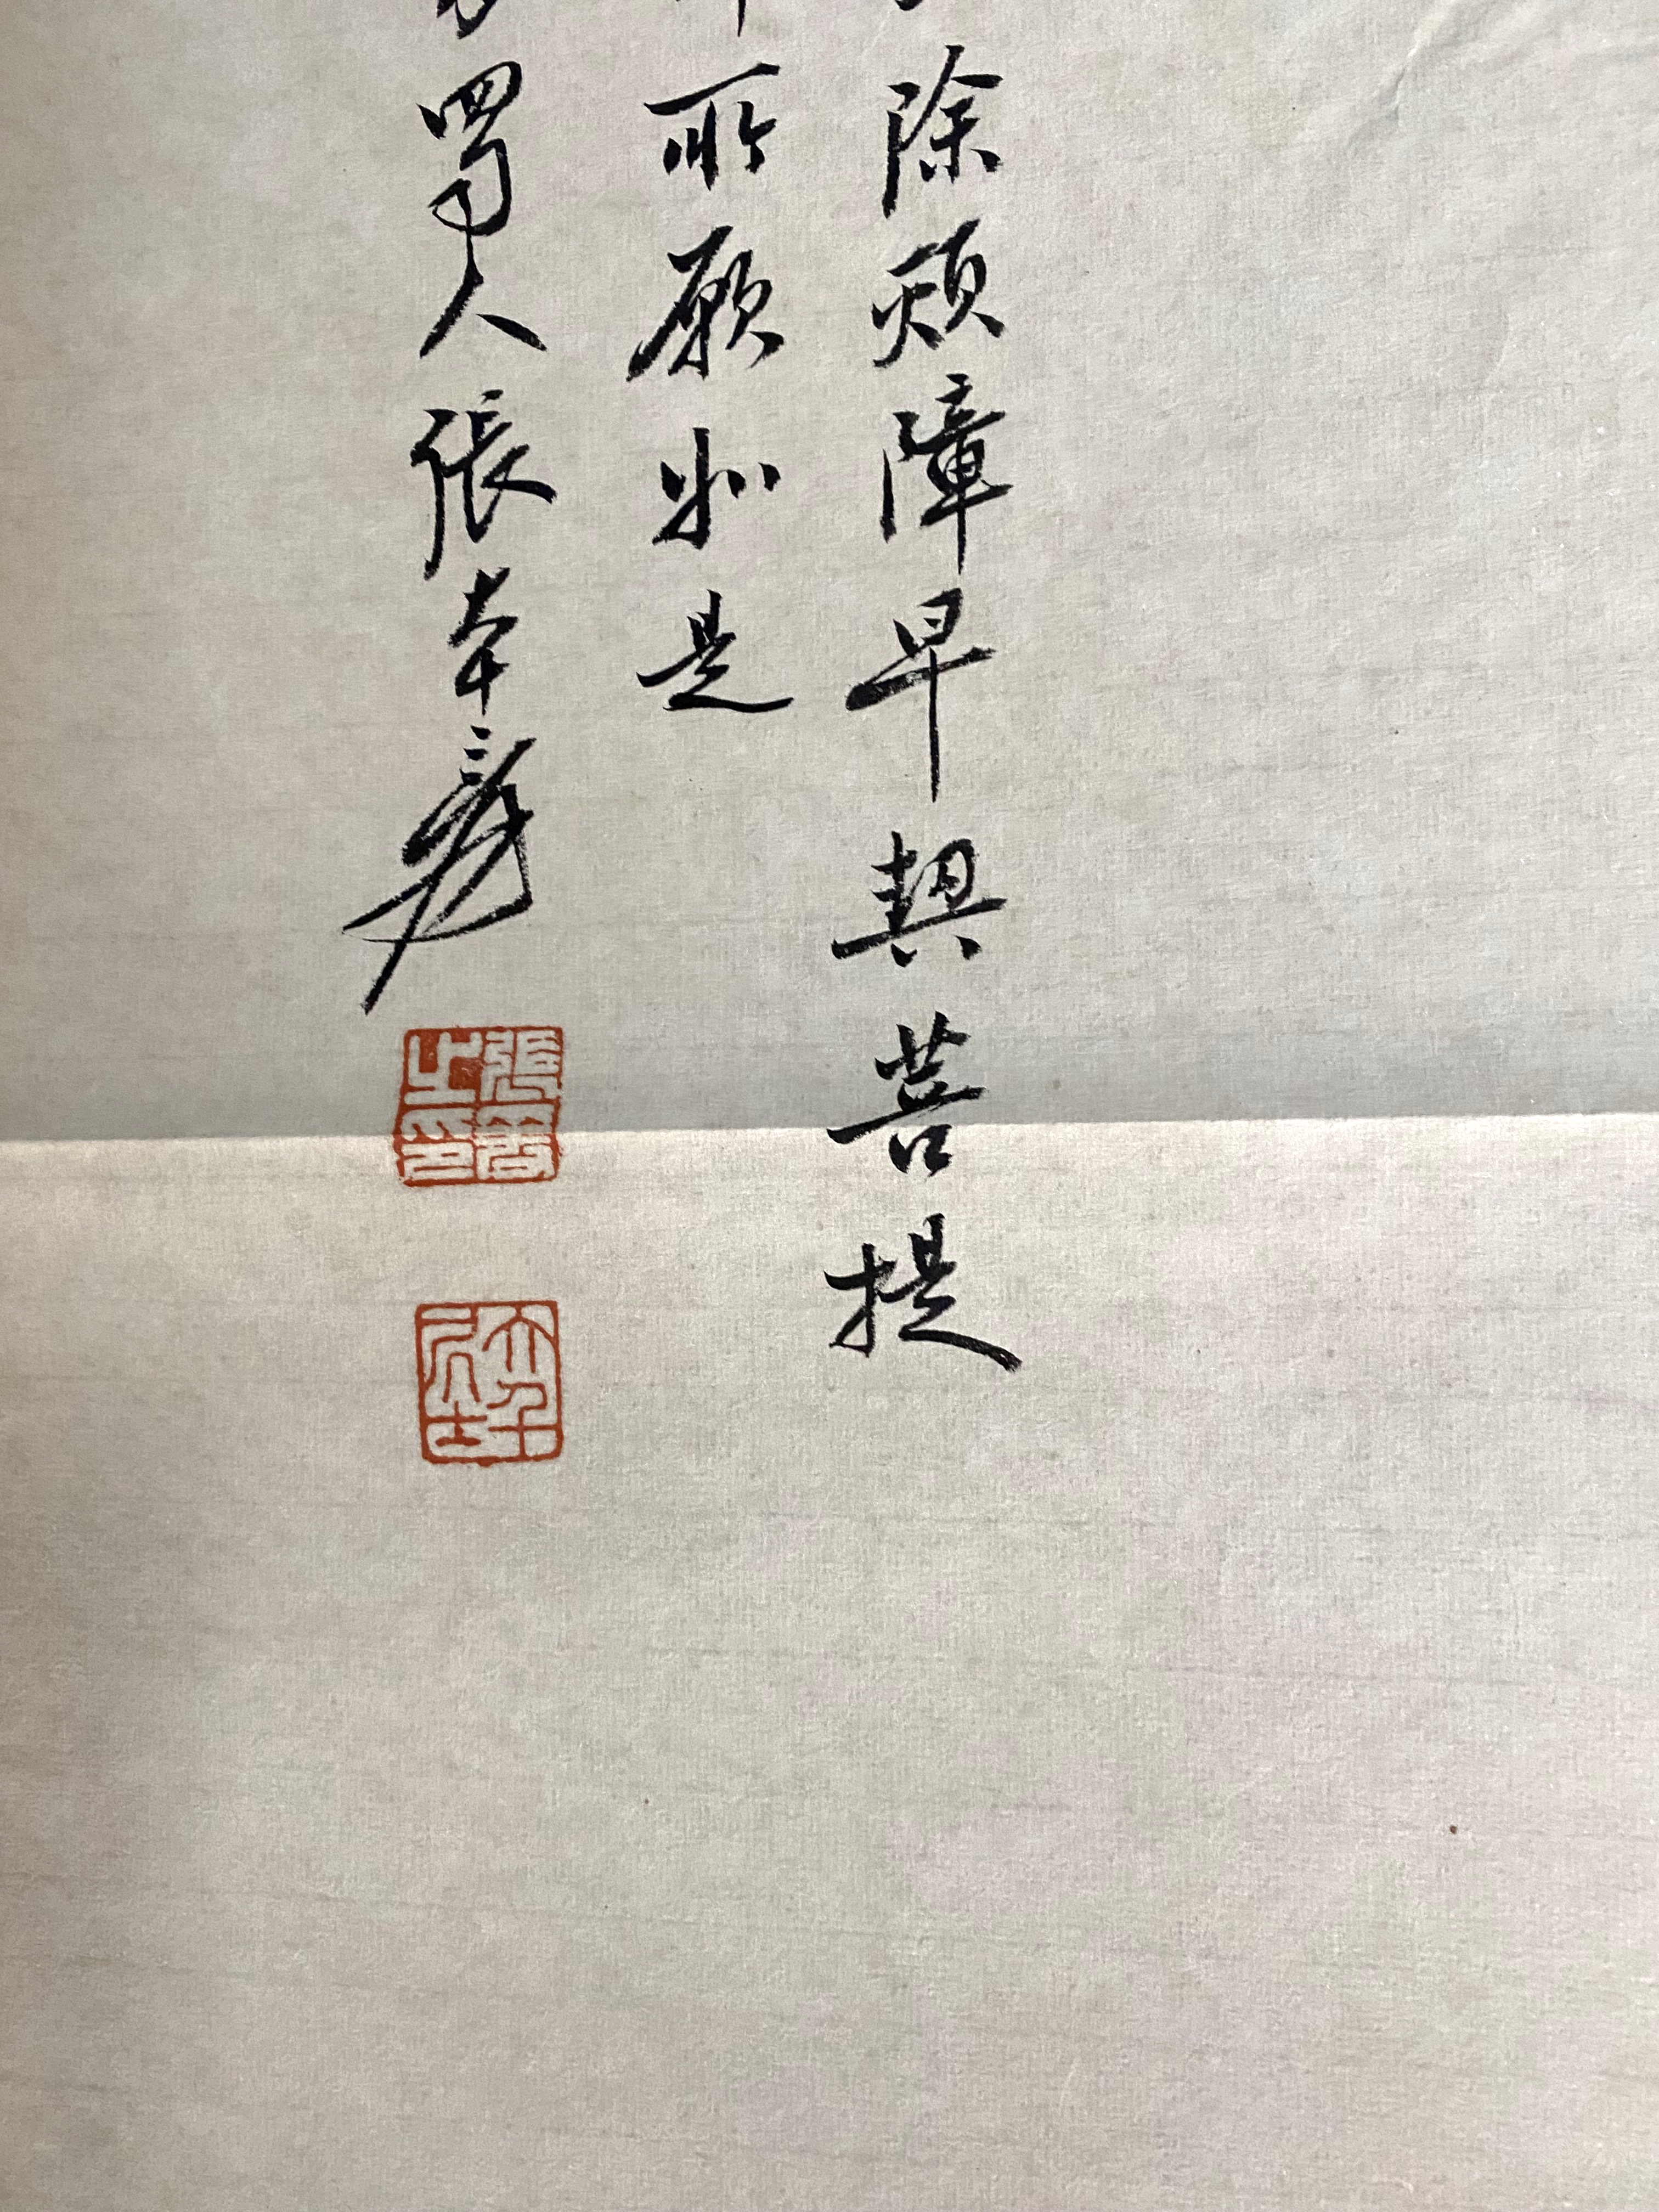 除煩障早契菩提
所願如是
蜀人張大千爰
張爰之印